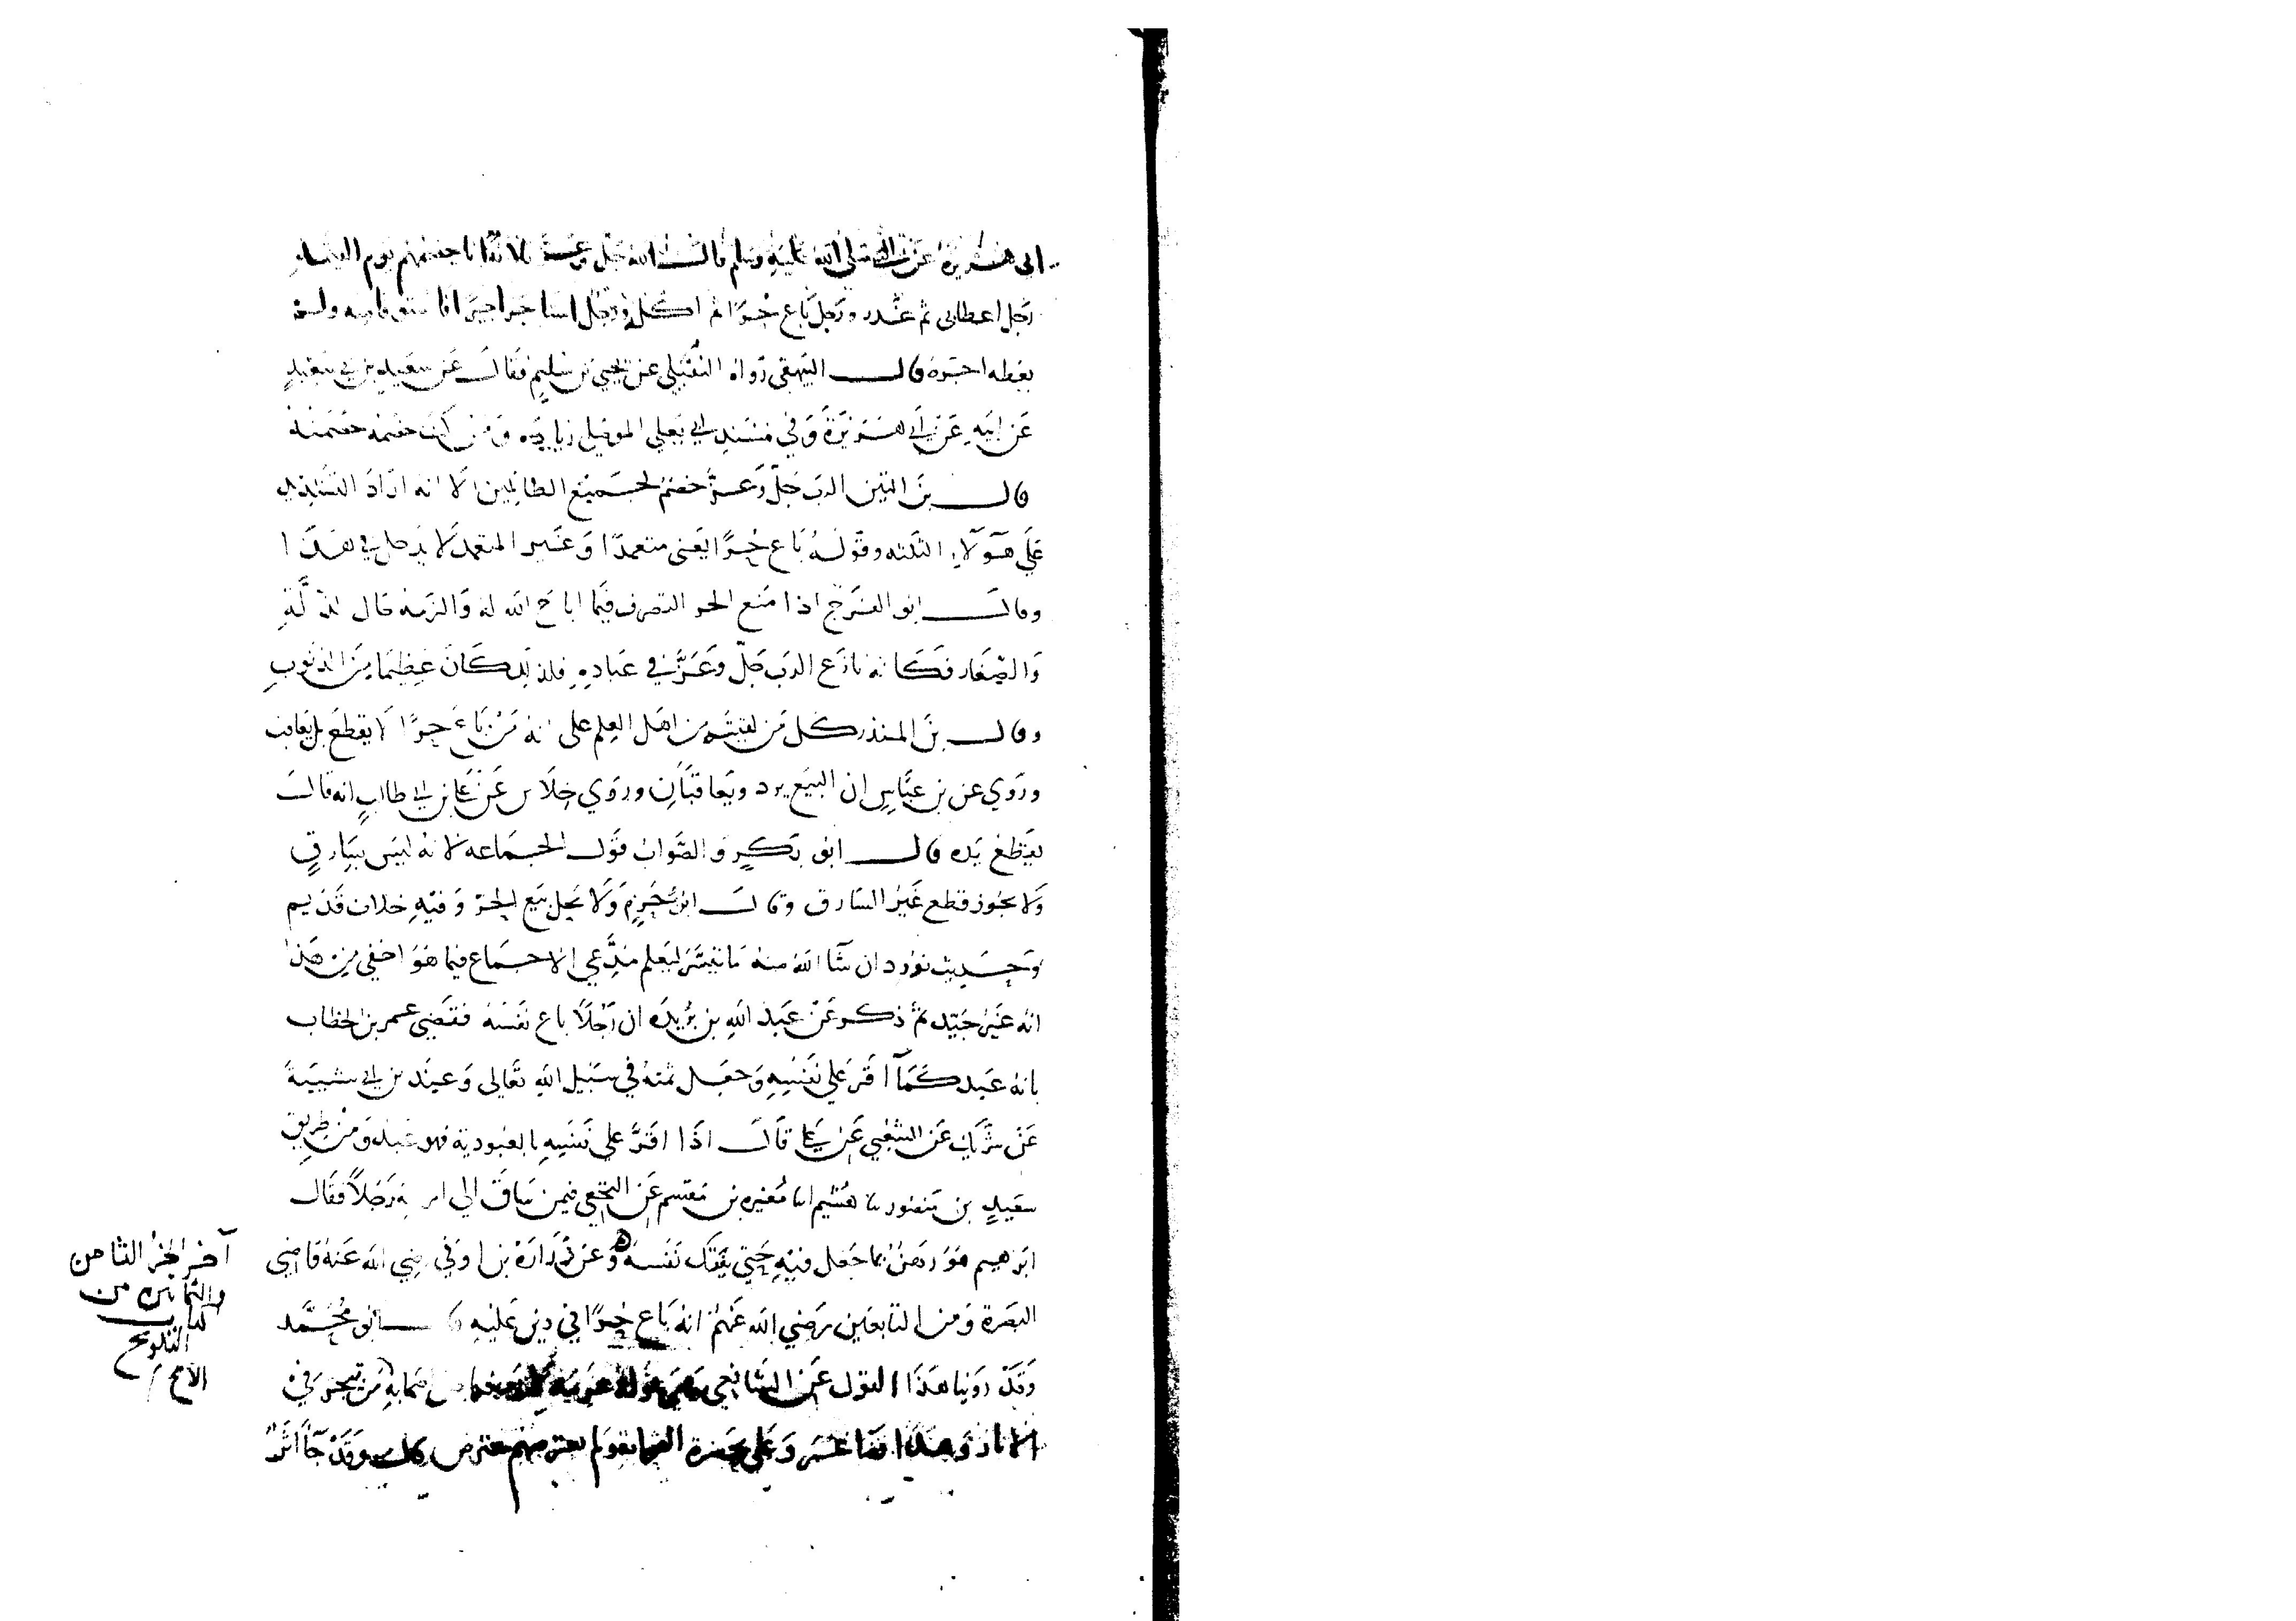 ابي هريرة عن النبي صلى الله عليه وسلم قال الله جل وعز ثلاثة انا خصمهم يوم القيامة
رجل اعطا بي ثم غدر ورجل باع حرا ثم اكل ورجل استاجر اجيرا فاستوفا منه ولم
يعطه اجره قال البيهقي رواه النفيلي عن يحيى بن سليم فقال عن سعيد بن ابي سعيد
عن ابيه عن ابي هريرة وفي مسند ابي يعلي الموصلي زيادة ومن كنت خصمه خصمته
قال بن التين الرب جل وعز خصم لجميع الظالمين الا انه اراد التشديد
علي هولآء الثلثه وقوله باع حرا يعني متعمدا وغير المتعمد لا يدخل في هذا
وقال ابو الفرج اذا منع الحر التصرف فيما اباح الله له والزمه حال الذلة
والصغار فكانه نازع الرب جل وعز في عباده فلذلك كان عظيما من الذنوب
وقال بن المنذر كل من لقيته من اهل العلم على انه من باع حرا لا يقطع بل يعاقب
وروي عن بن عباس ان البيع يرد ويعاقبان وروي خلاس عن علي بن ابي طالب انه قال
يقطع يده قال ابو بكر والصواب قول الجماعه لانه ليس بسارق
ولا يجوز قطع غير السارق وقال ابن حزم ولا يحل بيع الحر وفيه خلاف قديم
وحديث نورد ان شآ الله منه ما تيسر ليعلم مدعي الاجماع فيما هو اخفي من هذا
انه غير جيد ثم ذكر عن عبد الله بن بريدة ان رجلا باع نفسه فقضي عمر بن الخطاب
بانه عبد كمآ اقر علي نفسه وجعل ثمنه في سبيل الله تعالي وعند بن ابي شيبة
عن شريك عن الشعبي عن علي قال اذا اقر علي نفسه بالعبودية فهو عبد ومن طريق
سعيد بن منصور نا هشيم انا مغيره بن مقسم عن النخعي فيمن ساق الي امراته رجلا فقال
ابرهيم هو رهن بما جعل فيه حتي يفتك نفسه وعن زرارة بن اوفي رضي الله عنه قاضي
البصرة ومن التابعين رضي الله عنهم انه باع حرا في دين عليه قال ابو محمد
وقد روينا هذا القول عن الشافعي وهي قولة غريبة لا يعرفها من اصحابه من تبحر في
الاثار وهذا قضا عمر وعلي بحضرة الصحابة ولم يعترضهم معترض قال وقد جآ اثر
آخر الجز الثامن
والثمانين من
كتاب
التلويح